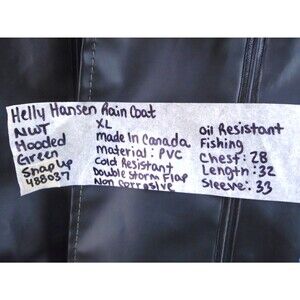 Helly Hansen Rain Coat
NWT
Hooded
Green
Snap up
488037
XL
made In Canada
Material: PVC
Cold Resistant
Double Storm Flap
Non Corrosive
Oil Resistant
Fishing
Chest: 28
Length: 32
Sleeve: 33